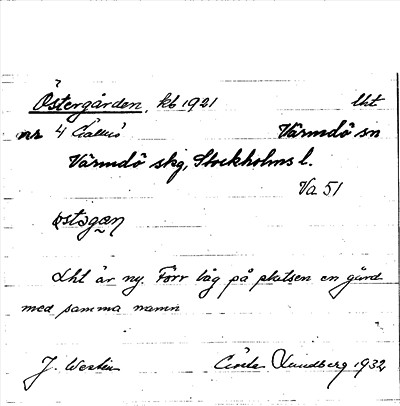 Östergården, kb 1921 lht
nr 4 Värmdö sn
Värmdö skg, Stockholms l.
Va 51
østɔgæn
Lht är ny. Förr låg på platsen en gård
med samma namn
J. Westin Lundberg 1932